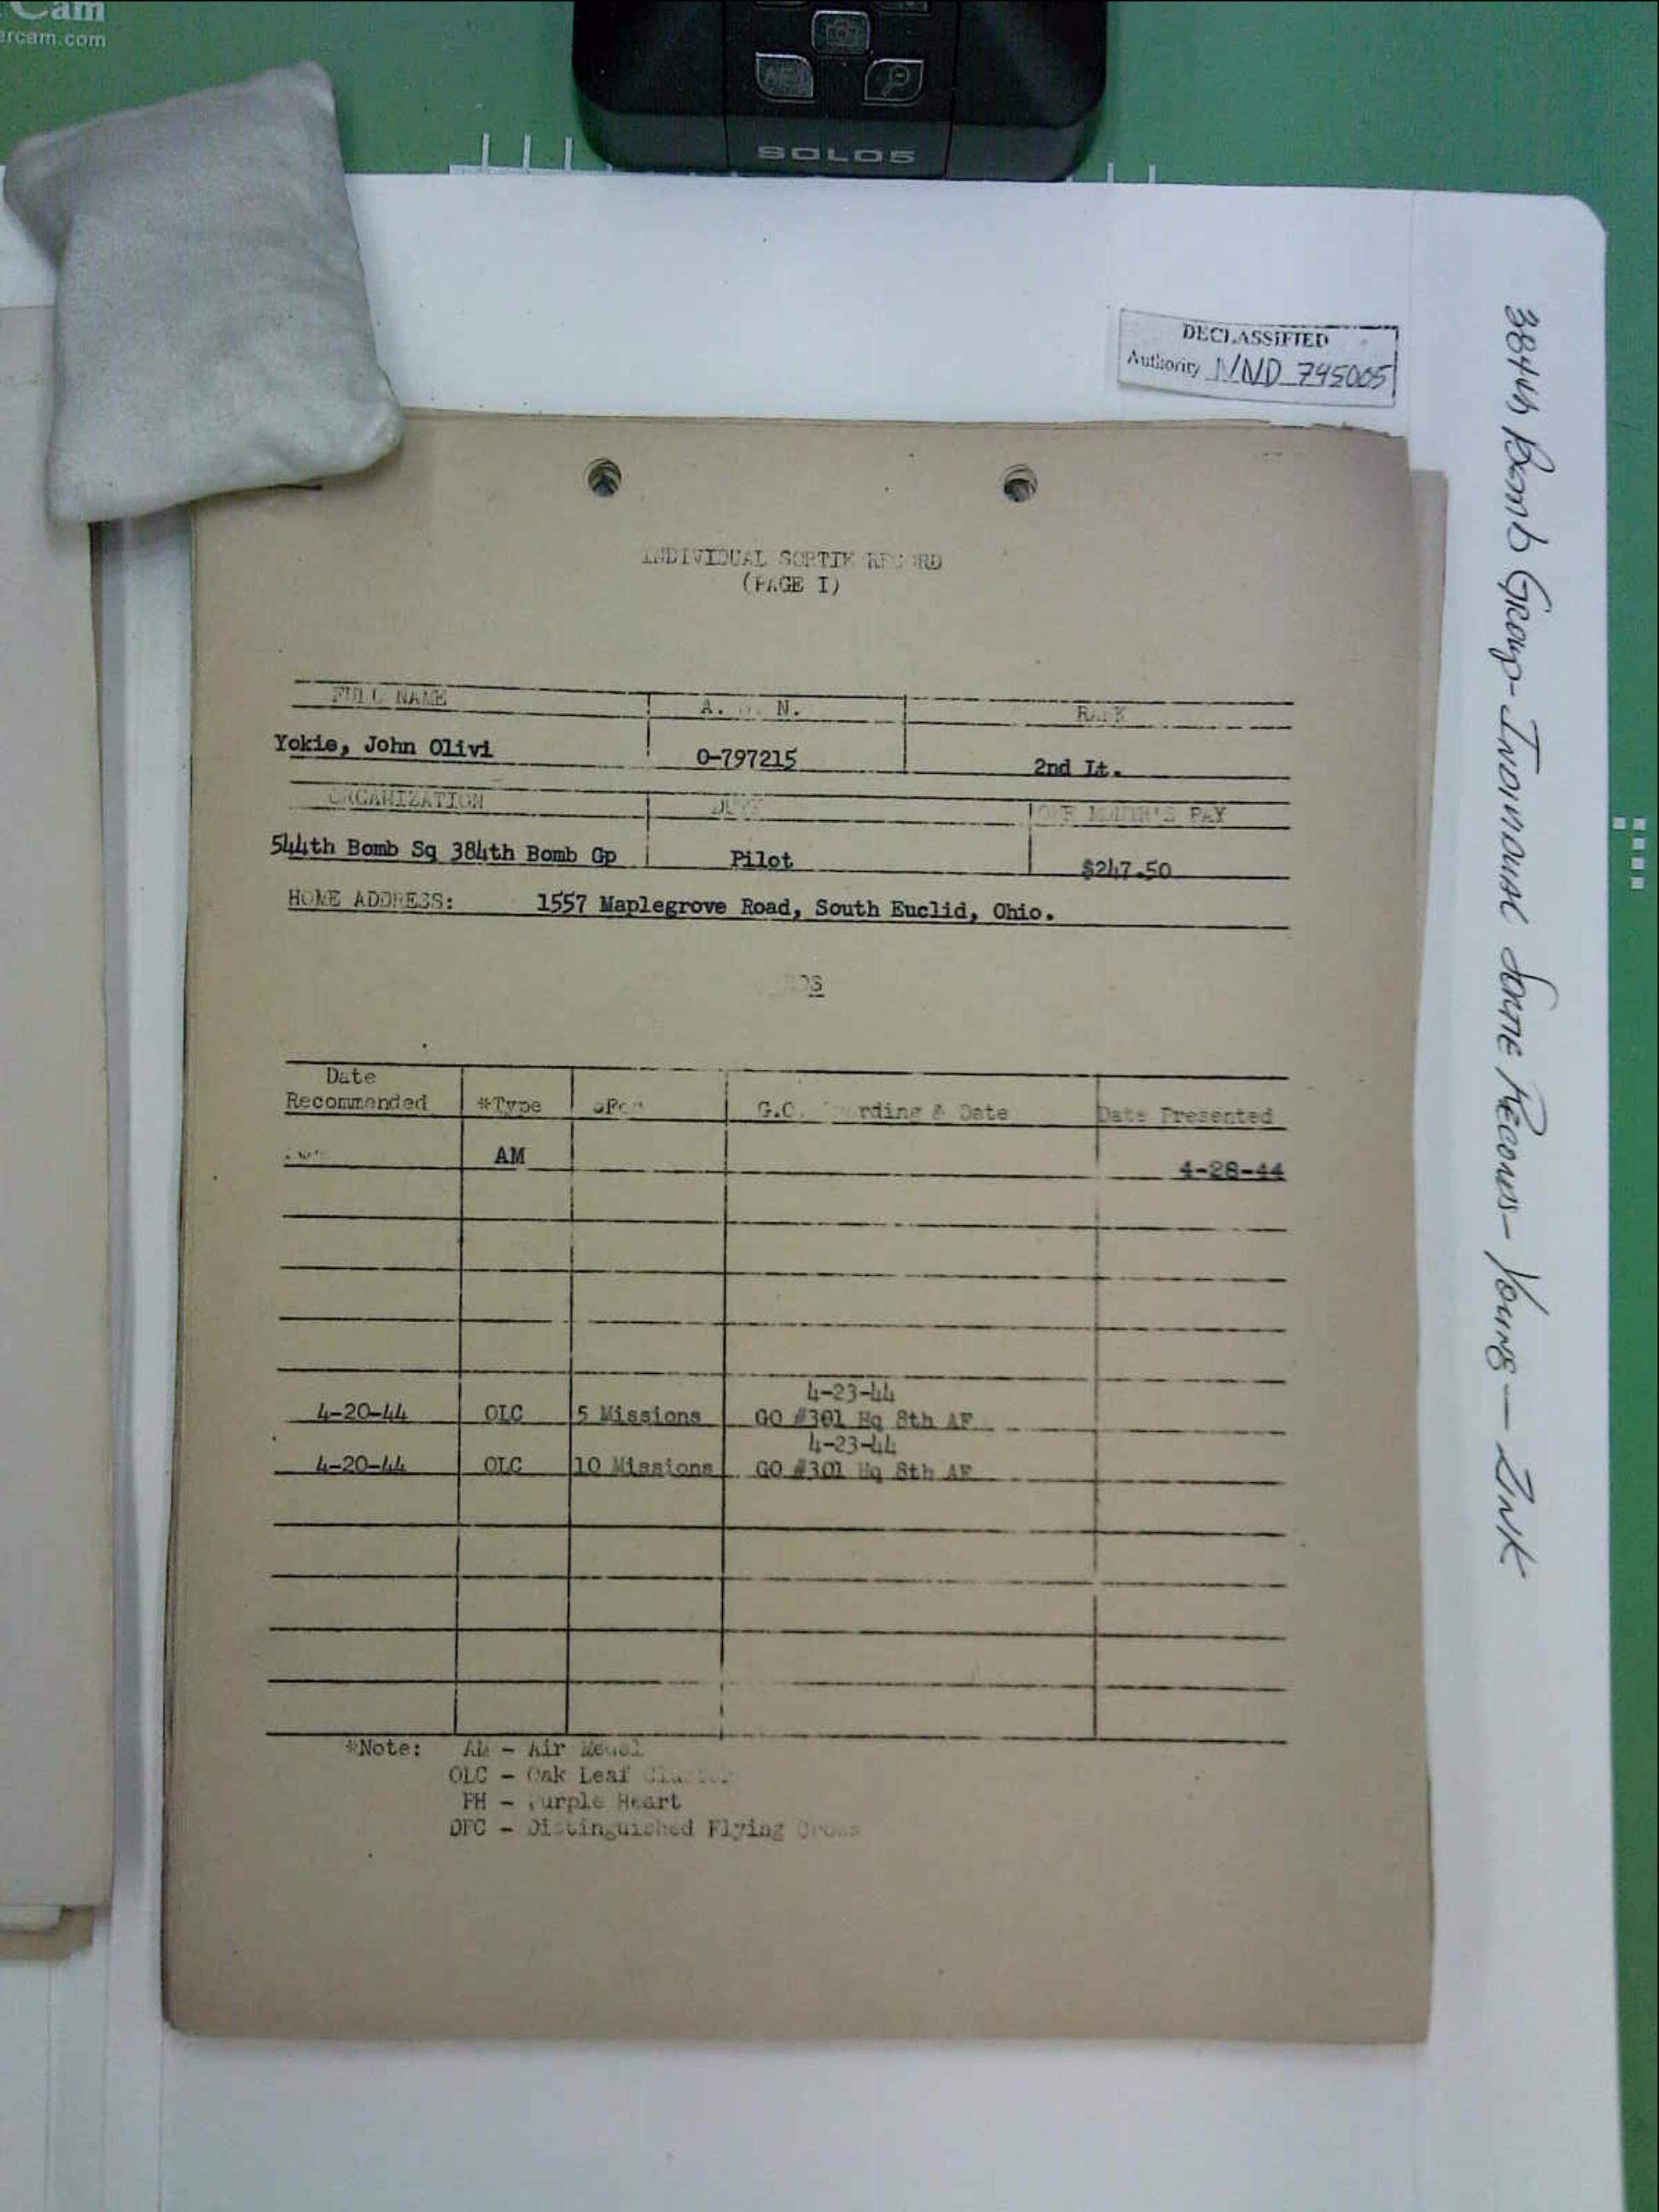 ercam.com
SOLO5
DECLASSIFIED
Authority NND 745005
384th Bomb Group-Individual Sortie Records-Young-Zink
INDIVIDUAL SORTIE RECORD
(PAGE I)
FULL NAME A. N. RANK
Yokie, John Olivi 0-797215 2nd Lt.
ORGANIZATION DUTY ONE MONTH'S PAY
544th Bomb Sq 384th Bomb Gp Pilot $247.50
HOME ADDRESS: 1557 Maplegrove Road, South Euclid, Ohio.
Date
Recommended *Type G.O. & Date Date Presented
AM 4-28-44
4-23-44
4-20-44 OLC 5 Missions GO #301 Hq 8th AF
4-23-44
4-20-44 OLC 10 Missions GO #301 Hq 8th AF
*Note: AM - Air Medal
OLC - Oak Leaf Cluster
PH - Purple Heart
DFC - Distinguished Flying Cross